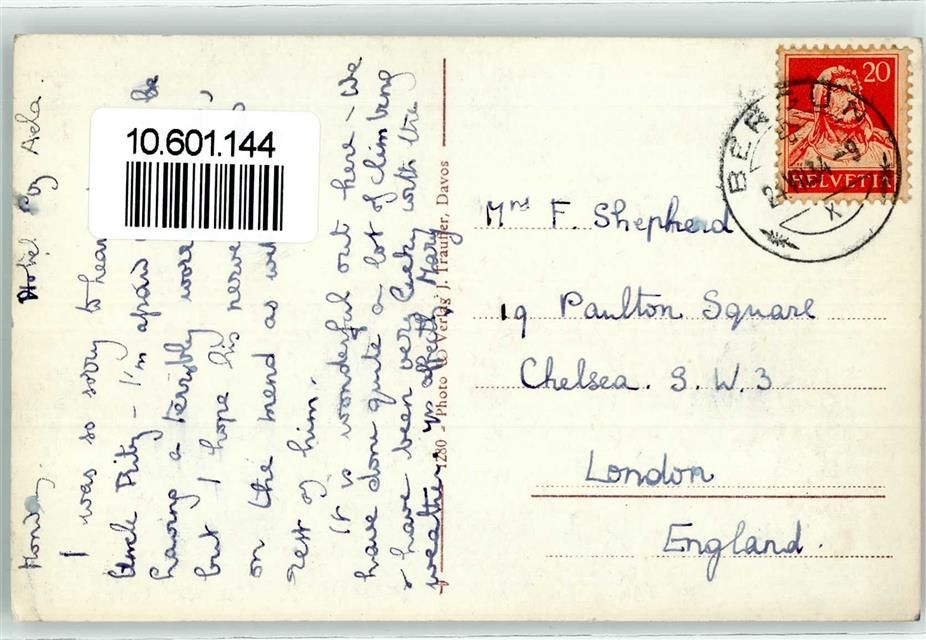 Monday.
Hotel Piz Aela.
I was so sorry to hear
Uncle Fritz - I'm afraid be
having a terribly
but I hope his nerve
on the mend as
rest of him.
It is wonderful out here - We
have done quite a lot of climbing
& have been very lucky with the
weather. Yrs affectly Mary
10.601.144
1280 - Photo & Verlag J. Trauffer, Davos
20
HELVETIA
BERGÜN
Mrs F. Shepherd
19 Paulton Square
Chelsea. S.W.3
London
England.